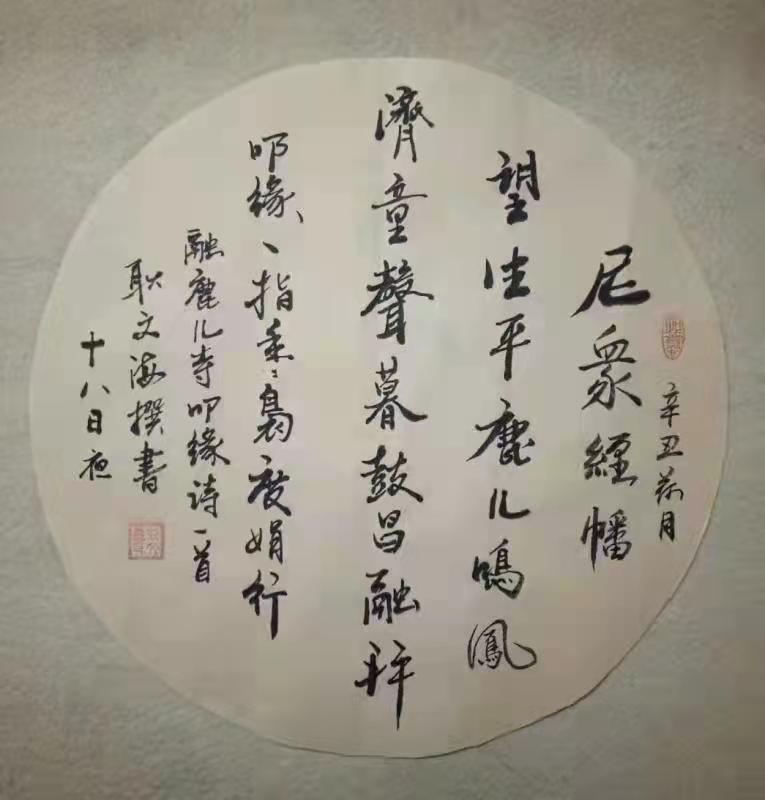 辛丑月
尼眾經幡
望平鹿儿鳴鳳
濟童聲暮鼓昌融祥
叩緣指度娟行
融鹿儿寺叩緣诗一首
耿文海撰書
十八日夜